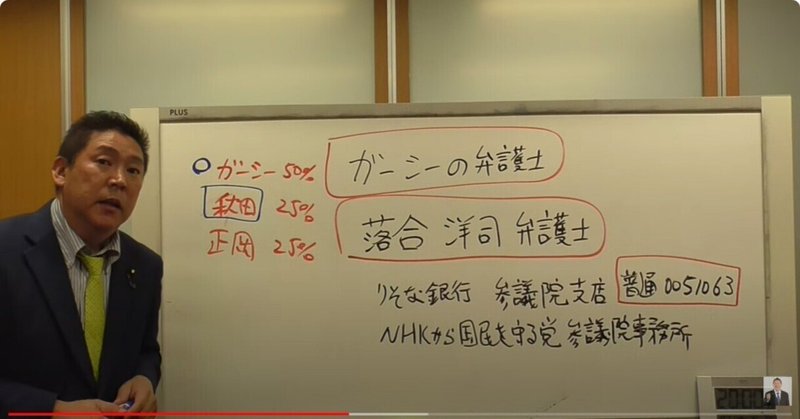 PLUS
ガーシー 50%
ガーシーの弁護士
秋田 25%
落合 洋司 弁護士
正岡 25%
りそな銀行 参議院支店 普通 0051063
NHKから国民を守る党 参議院事務所
20:00